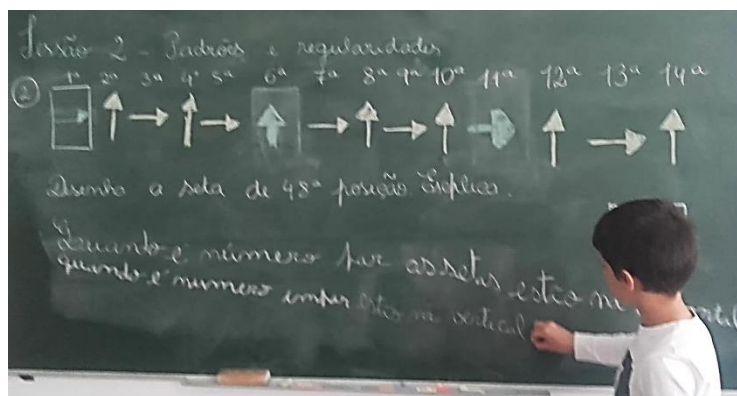 Sessão 2 - Padrões e regularidades
1ª 2ª 3ª 4ª 5ª 6ª 7ª 8ª 9ª 10ª 11ª 12ª 13ª 14ª
2
Desenha a seta de 48ª posição. Explica.
Quando é número par as setas estão na
quando é numero impar estão na vertical